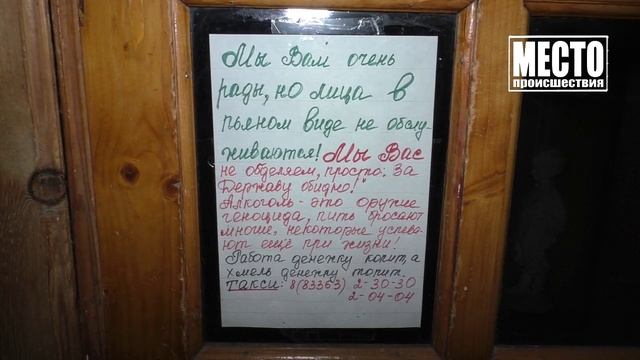 МЕСТО
происшествия
Мы Вам очень
рады, но лица в
пьяном виде не обслу-
живаются! Мы Вас
не обделяем, просто: За
Державу обидно!"
Алкоголь - это оружие
геноцида, пить бросают
многие, некоторые успева-
ют ещё при жизни!
Работа денежку копит, а
хмель денежку топит.
Такси: 8(83363) 2-30-30
2-04-04